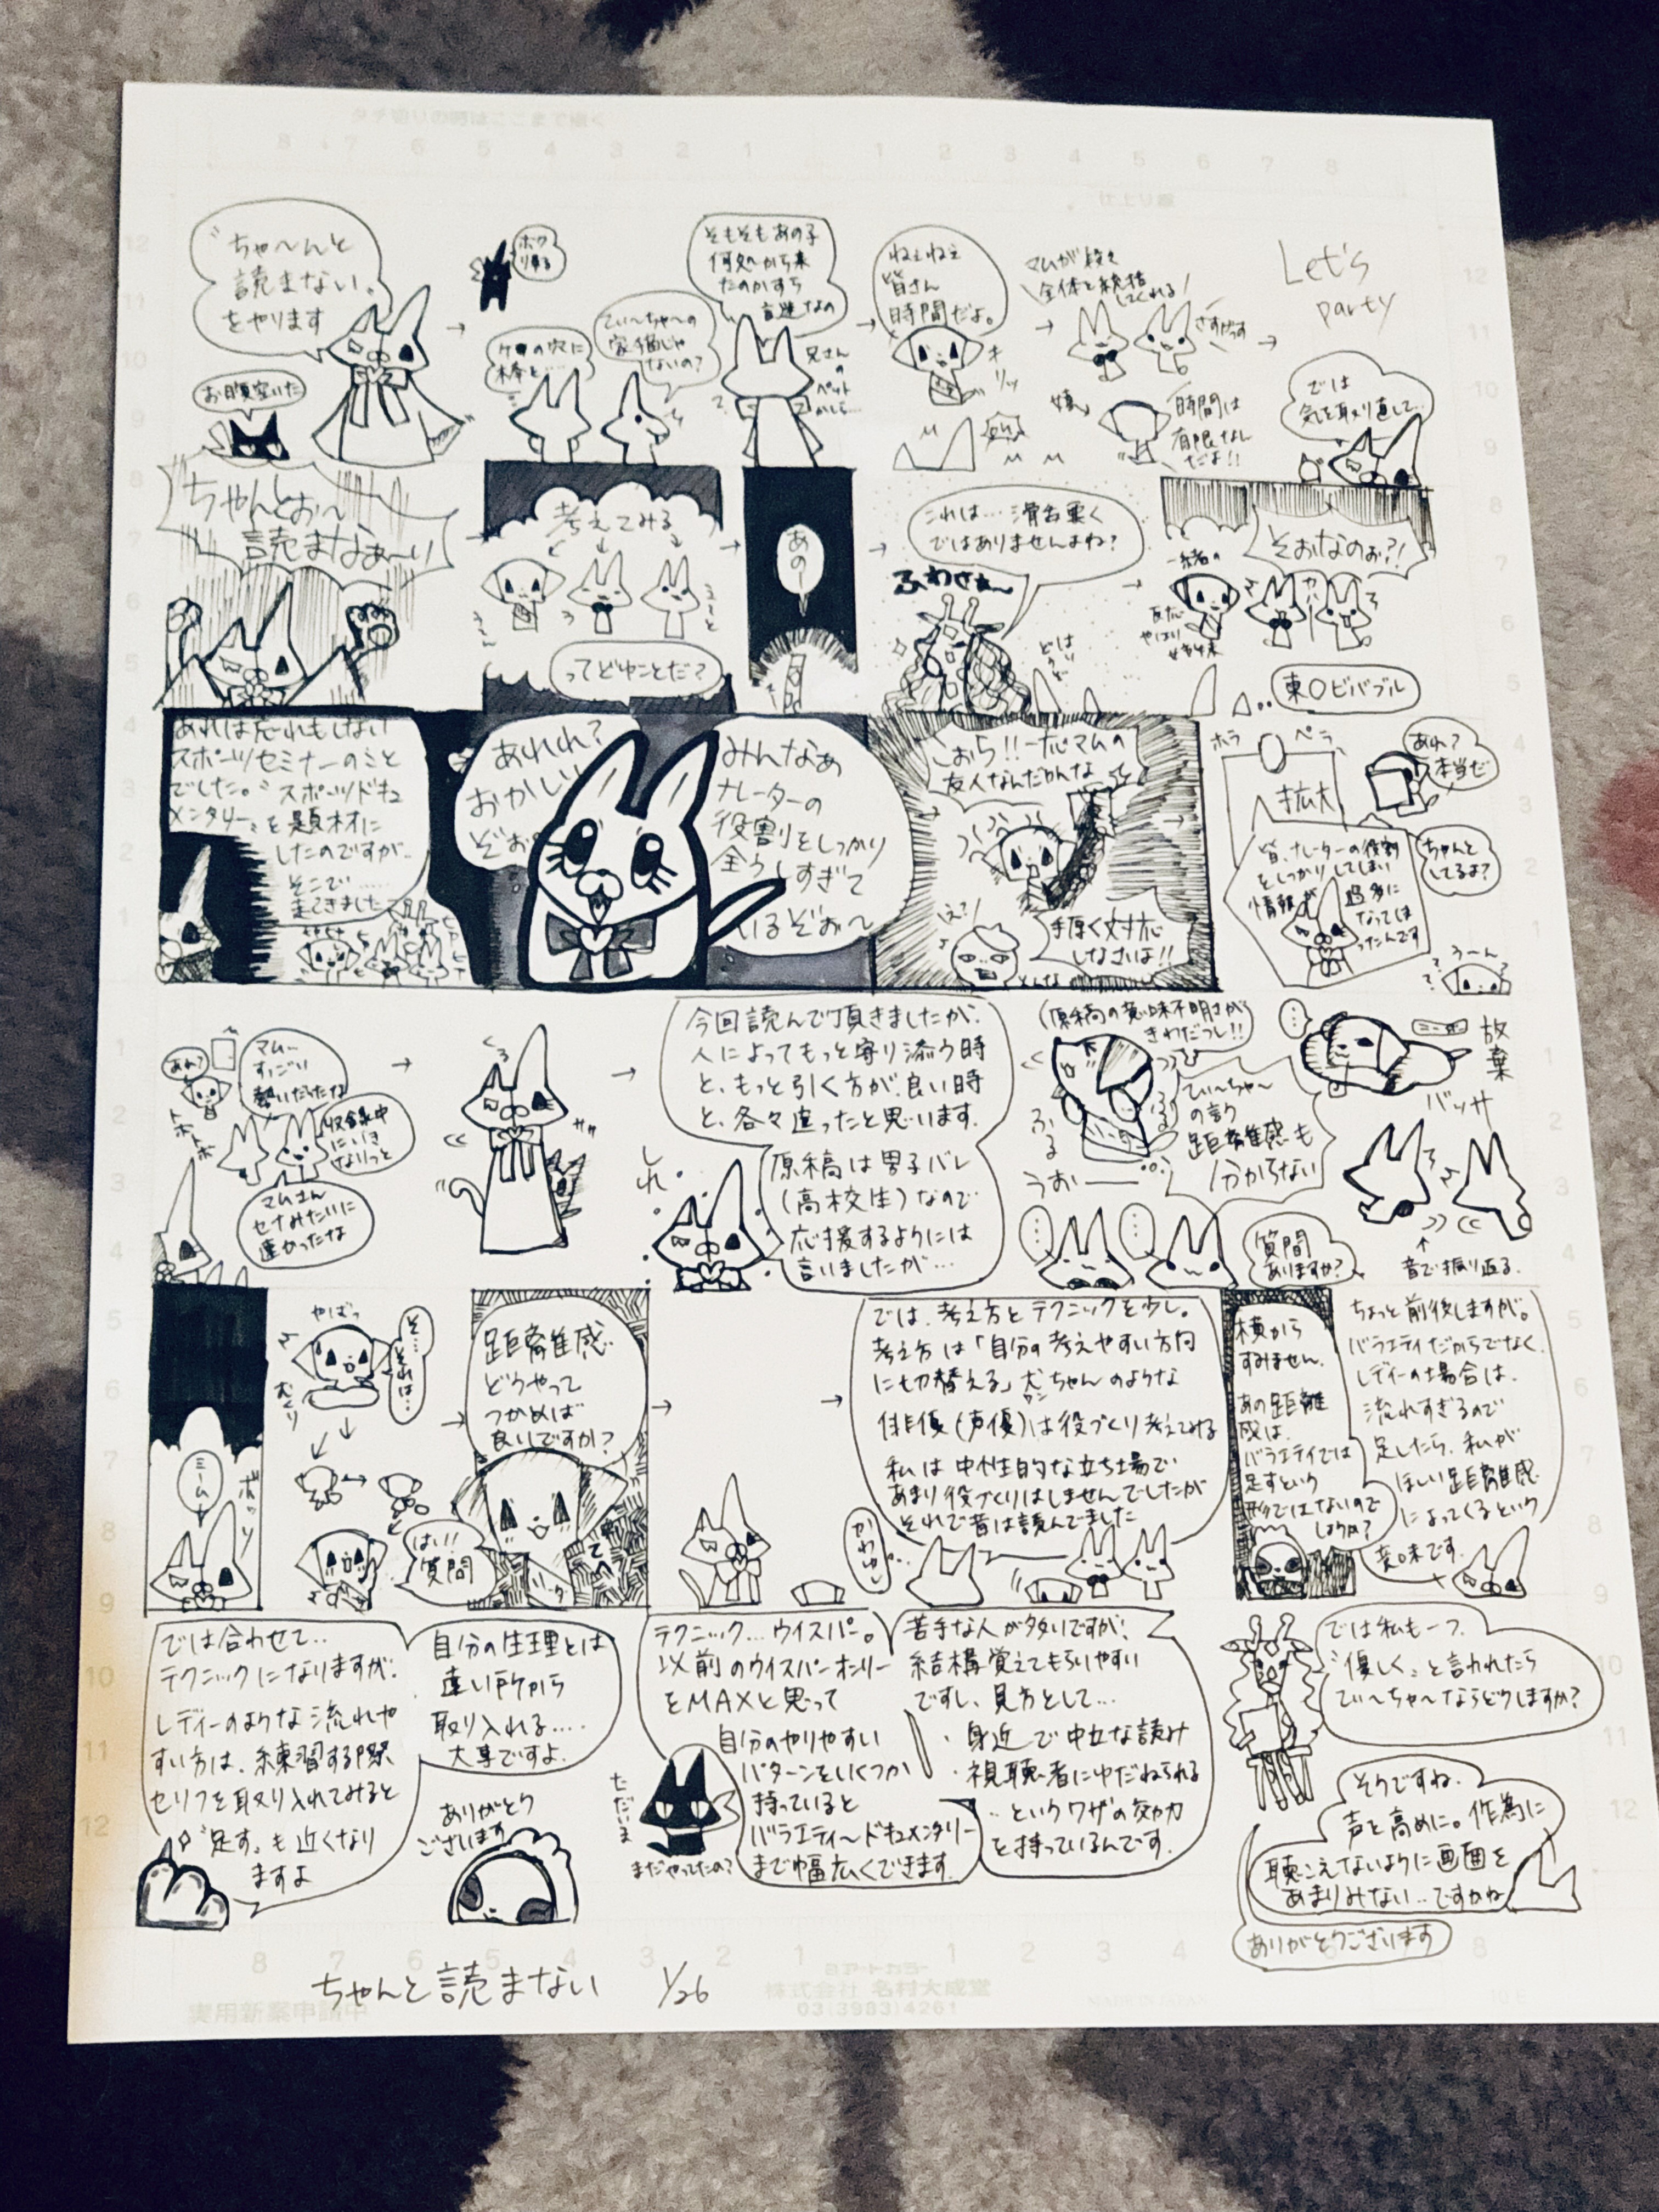 Let's
party
〝ちゃ〜んと
読まない〟
をやります
お腹空いた
ボク
帰る
ケツの穴に
棒と……
てぃ〜ちゃ〜の
家猫じゃ
ないの?
そもそもあの子
何処から来
たのかすら
言逆なの
兄さん
の
ペット
かしら…
ねぇねぇ
皆さん
時間だよ。
キリッ
マムが段々
全体を統括
してくれる
さすがっす
時間は
有限なん
だよ!!
では
気を取り直して…
ちゃんとぉ〜
読まなぁ〜い
考えてみる
ってどゆことだ?
あの…
これは…滑舌悪く
ではありませんよね?
ふわさぁ〜
はい
どうぞ
そぉなのぉ?!
一緒の
反応
やはり
東○ビバブル
あれは忘れもしない
スポーツセミナーのこと
でした。〝スポーツドキュ
メンタリー〟を題材に
したのですが…
そこで……
起きました
あれれ?
おかしい
ぞぉ
みんなぁ
ナレーターの
役割をしっかり
全うしすぎて
いるぞぉ〜
こぉら!!一応マムの
友人なんだかんな
手厚く対応
しなさいよ!!
ホラ
ペラ
拡大
あれ?
本当だ
皆、ナレーターの役割
をしっかりしてしまい
情報が
過多に
なってしま
ったんです
ちゃんと
してるよ?
うーん
あん?
マム…
すっごい
勢いだったな
トボトボ
収録中
にいき
なりっと
マムさん
セナみたいに
速かったな
今回読んで頂きましたが、
人によってもっと寄り添う時
と、もっと引く方が良い時
と、各々違ったと思います。
原稿は男子バレー
(高校生)なので
応援するようには
言いましたが…
(原稿の意味不明さが
きわだつし!!
てぃ〜ちゃ〜
の言う
距離感も
分からない
ふる
ぶる
うぉ——
質問
ありますか?
放棄
バッサ
音で振り返る。
ミーム
ポツリ
やばっ
むくり
そ…
それは…
はい!!
質問
距離感
どうやって
つかめば
良いですか?
では、考え方とテクニックを少し。
考え方は「自分の考えやすい方向
に切替える」犬ちゃんのような
俳優(声優)は役づくり考えてみる
私は中性的な立ち場で
あまり役づくりはしませんでしたが
それで昔は読んでました
かわゆい
横から
すみません。
あの距離
感は、
バラエティでは
足すという
形ではないので
しょうか?
ちょっと前後しますが。
バラエティだからでなく、
レディーの場合は、
流れすぎるので
足したら、私が
ほしい距離感
になってくるという
意味です。
では合わせて…
テクニックになりますが、
レディーのような流れや
すい方は、練習する際、
セリフを取り入れてみると
〝足す〟も近くなり
ますよ
自分の生理とは
遠い所から
取り入れる…
大事ですよ。
ありがとう
ございます
テクニック…ウイスパー。
以前のウイスパーオンリー
をMAXと思って
自分のやりやすい
パターンをいくつか
持っていると
バラエティ〜ドキュメンタリー
まで幅広くできます。
ただいま
まだやってたの?
苦手な人が多いですが、
結構覚えてもらいやすい
ですし、見方として…
・身近で中立な読み
・視聴者にゆだねられる
…というワザの効力
を持っているんです。
では私も一つ。
〝優しく〟と言われたら
てぃ〜ちゃ〜ならどうしますか?
そうですね。
声を高めに。作為に
聴こえないように画面を
あまりみない…ですかね
ありがとうございます
ちゃんと読まない 1/26
株式会社 名村大成堂
03(3983)4261
実用新案申請中